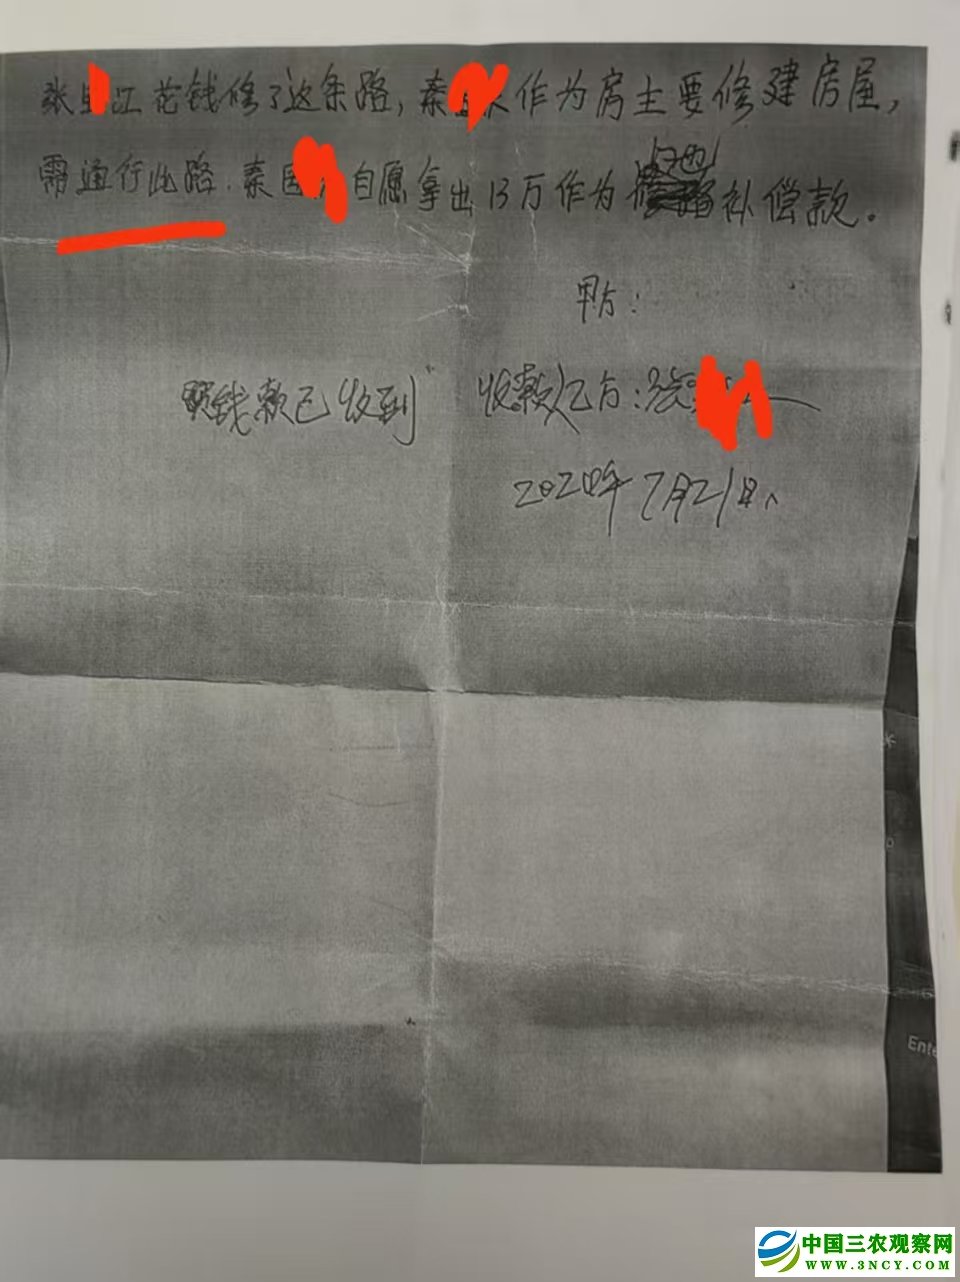 张江花钱修了这条路，秦作为房主要修建房屋，
需通行此路．秦国自愿拿出13万作为占地补偿款。
甲方：
钱款已收到 收款乙方：张
2020年7月21日
Ente
中国三农观察网
WWW.3NCY.COM